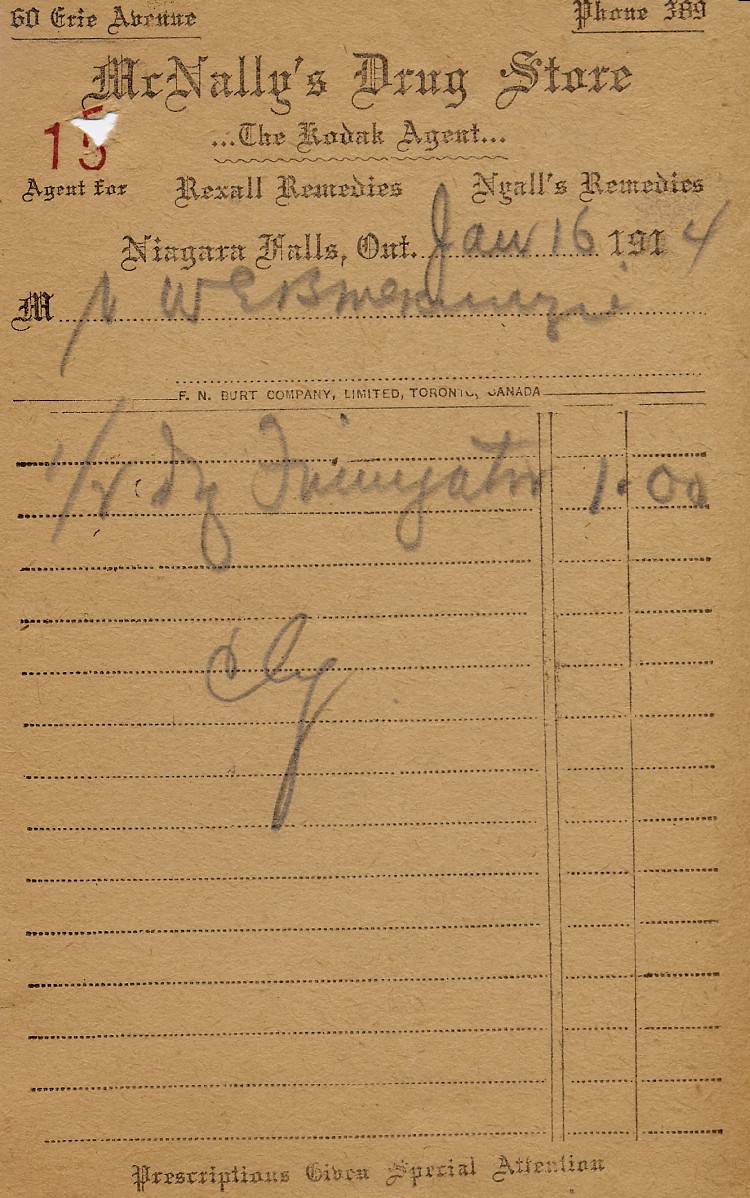 60 Erie Avenue Phone 389
McNally's Drug Store
...The Kodak Agent...
15
Agent for Rexall Remedies Nyall's Remedies
Niagara Falls, Ont. Jan 16 1914
M r W E B McKenzie
F. N. BURT COMPANY, LIMITED, TORONTO, CANADA
1/2 Dz 1.00
Prescriptions Given Special Attention